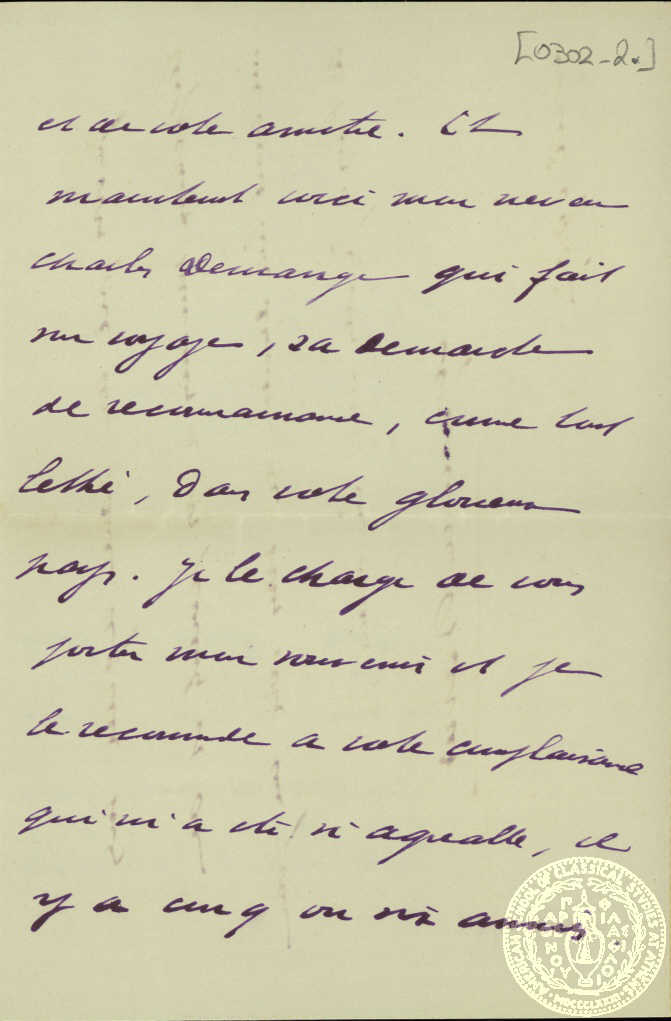 [0302-2.]
et de votre amitié. Et
maintenant voici mon neveu
Charles Demange qui fait
un voyage, sa demande
de reconnaissance, comme tout
lettré, dans votre glorieux
pays. Je le charge de vous
porter mon souvenir et je
le recommande à votre complaisance
qui m'a été si agréable, il
y a cinq ou six années.
AMERICAN SCHOOL OF CLASSICAL STUDIES AT ATHENS
MDCCCLXXXI